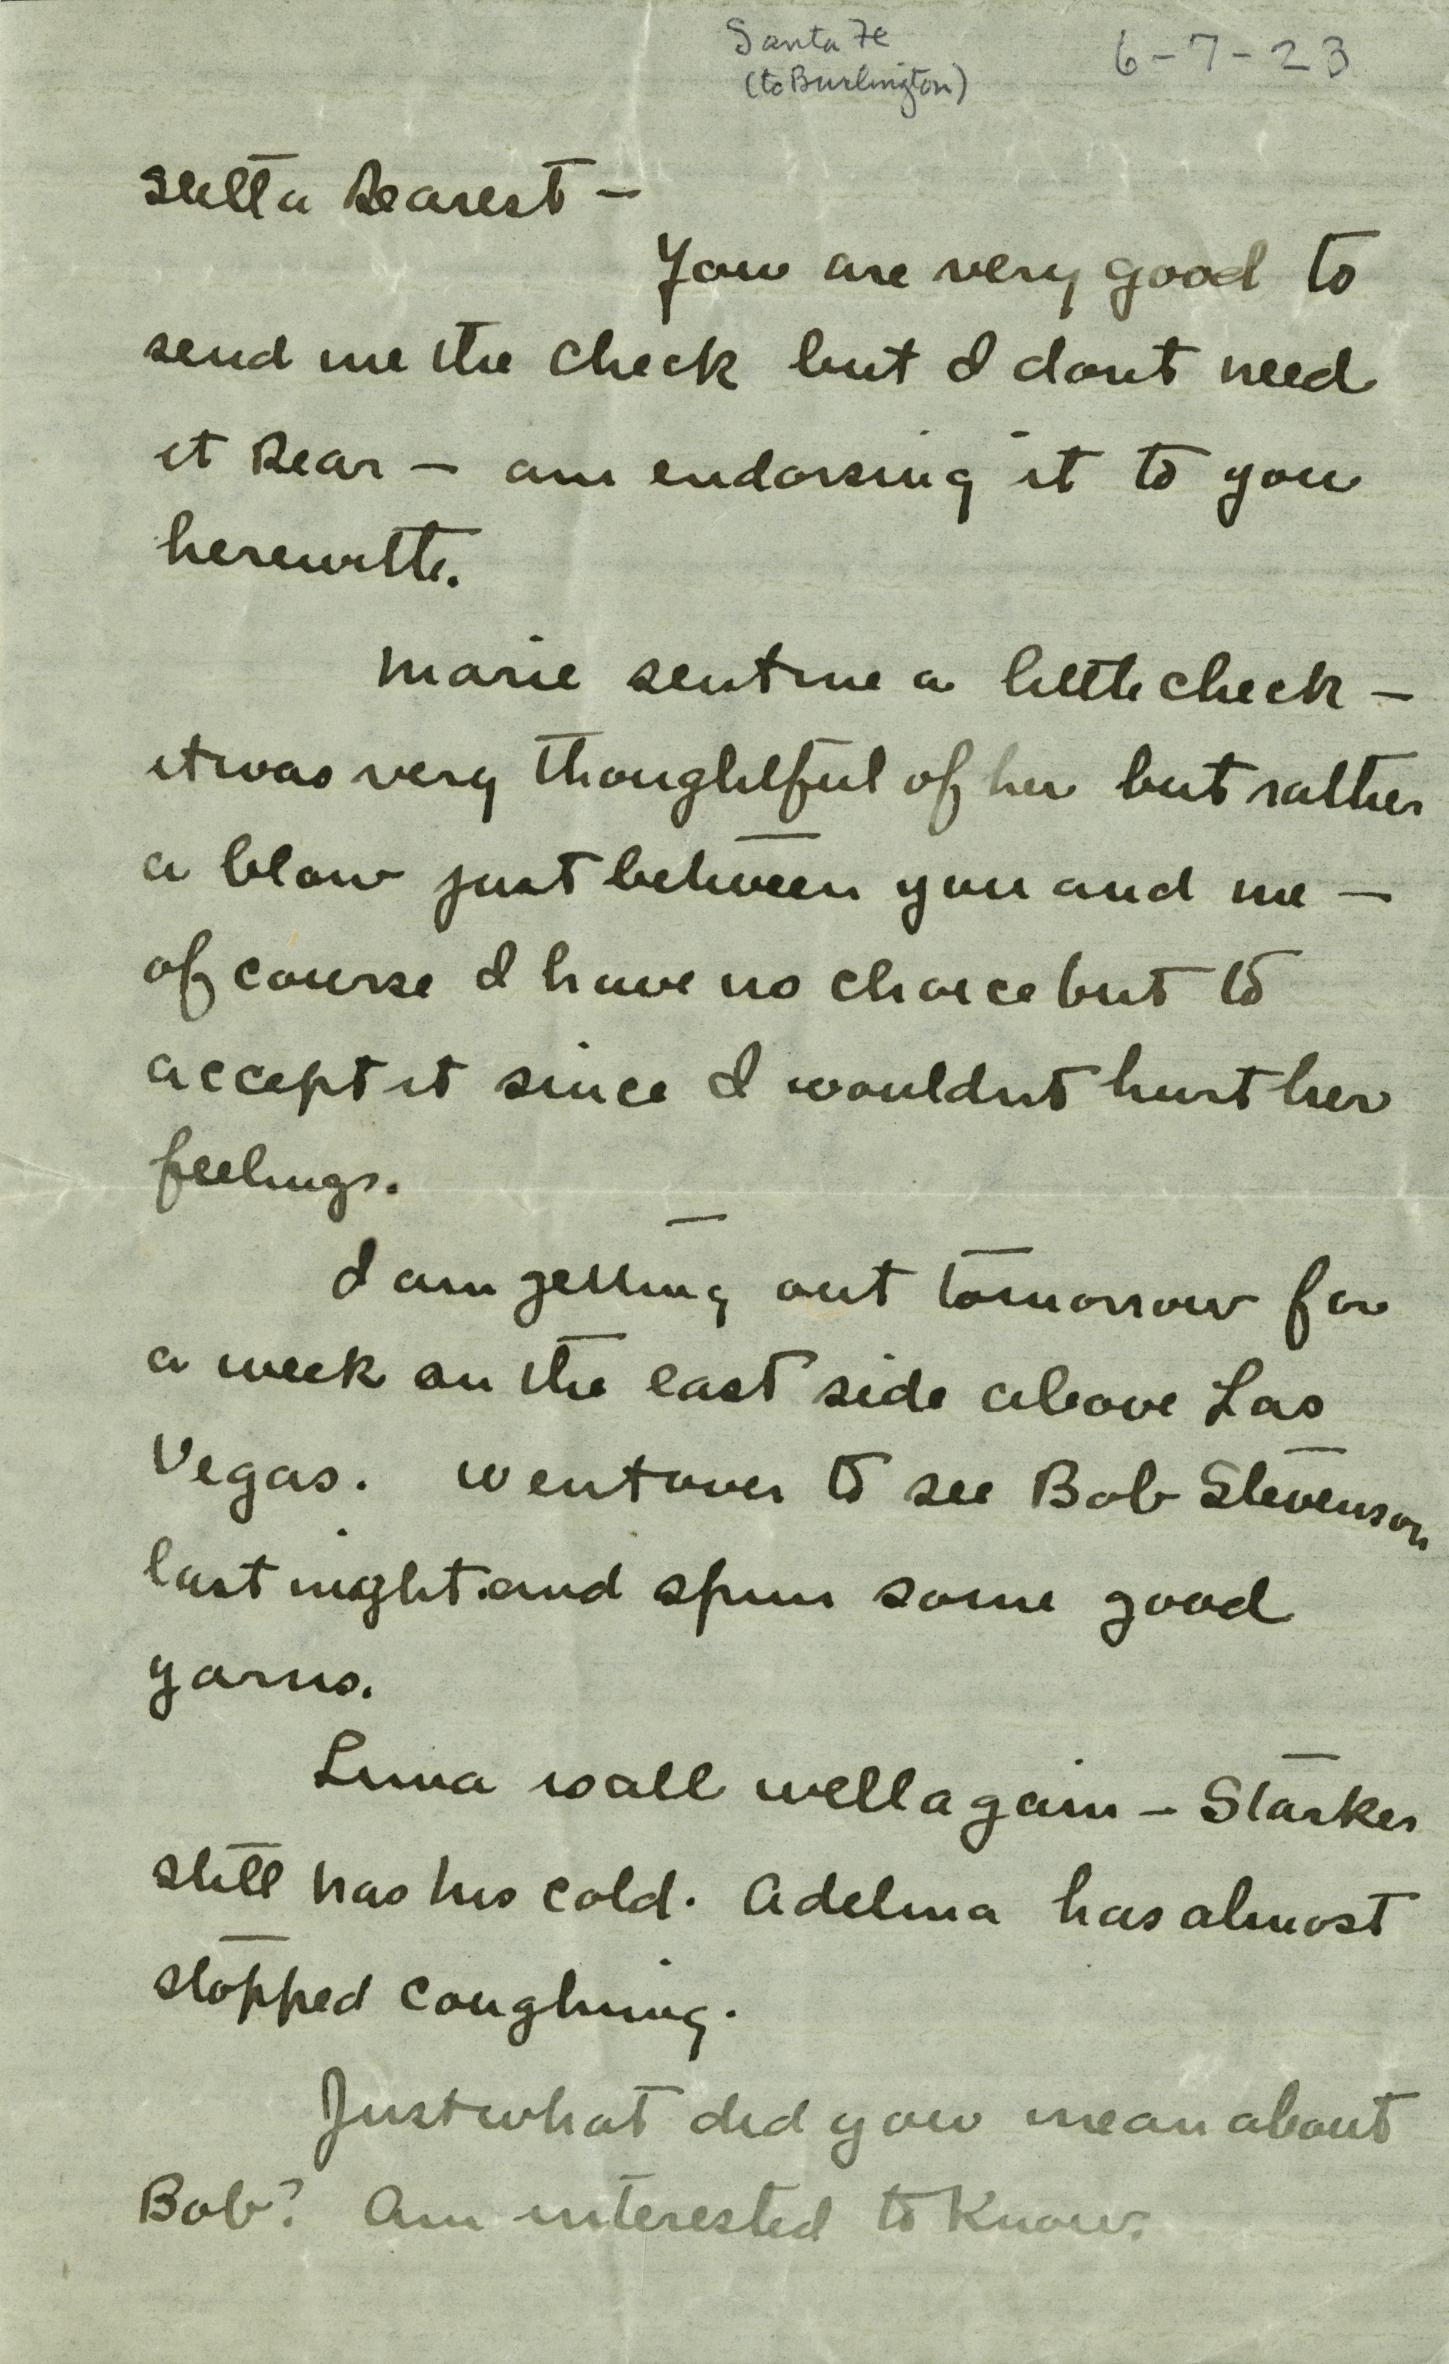 Santa Fe
(to Burlington)
6-7-23
Dearest -
You are very good to
send me the check but I dont need
it Dear - am endorsing it to you
herewith.
Marie sent me a little check -
it was very thoughtful of her but rather
a blow just between you and me -
of course I have no choice but to
accept it since I wouldnt hurt her
feelings.
I am getting out tomorrow for
a week on the east side above Las
Vegas. Went over to see Bob Stevenson
last night and spun some good
yarns.
Luna is all well again - Starker
still has his cold. Adelina has almost
stopped coughing.
Just what did you mean about
Bob? Am interested to know.